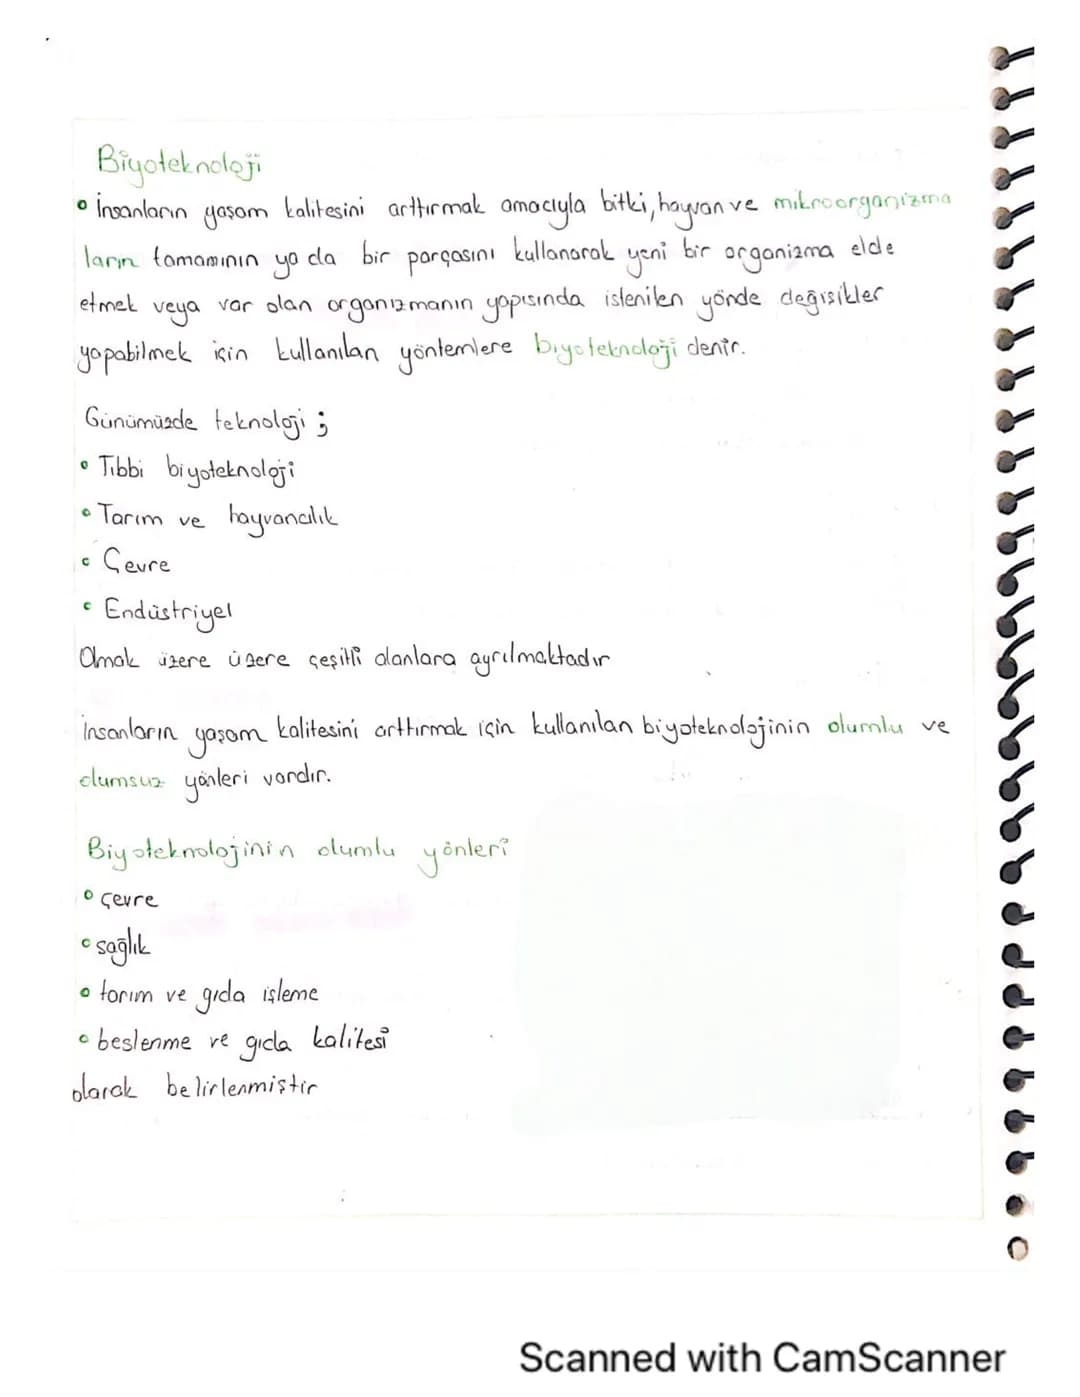 Biyoteknoloji
• İnsanların yaşam kalitesini arttırmak amacıyla bitki, hayvan ve mikroorganizma
ların tamamının ya da bir parçasını kullanarak yeni bir organizma elde
etmek veya var olan organizmanın yapısında istenilen yönde değişikler
yapabilmek için kullanılan yöntemlere biyoteknoloji denir.
Günümüzde teknoloji ;
• Tıbbi biyoteknoloji
• Tarım ve hayvancılık
• Çevre
• Endüstriyel
Olmak üzere üzere çeşitli alanlara ayrılmaktadır
İnsanların yaşam kalitesini arttırmak için kullanılan biyoteknolojinin olumlu ve
olumsuz yönleri vardır.
Biyoteknolojinin olumlu yönleri
• çevre
• sağlık
• tarım ve gıda işleme
• beslenme ve gıda kalitesi
olarak belirlenmiştir
Scanned with CamScanner